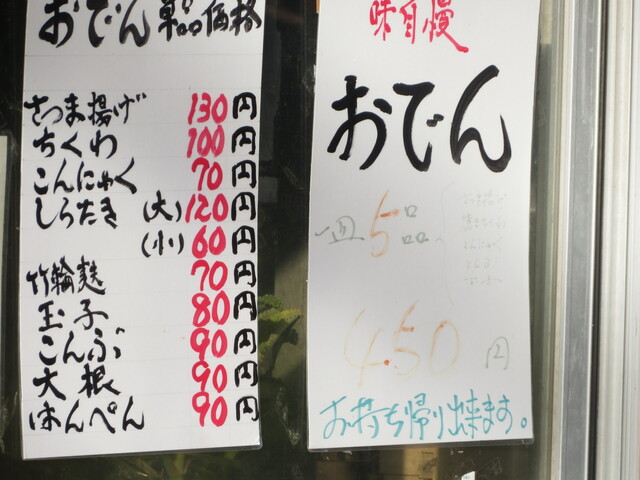 おでん 単品価格
さつま揚げ 130円
ちくわ 100円
こんにゃく 70円
しらたき (大) 120円
(小) 60円
竹輪麩 70円
玉子 80円
こんぶ 90円
大根 90円
はんぺん 90円
味自慢
おでん
一皿 5品
450円
お持ち帰り出来ます。